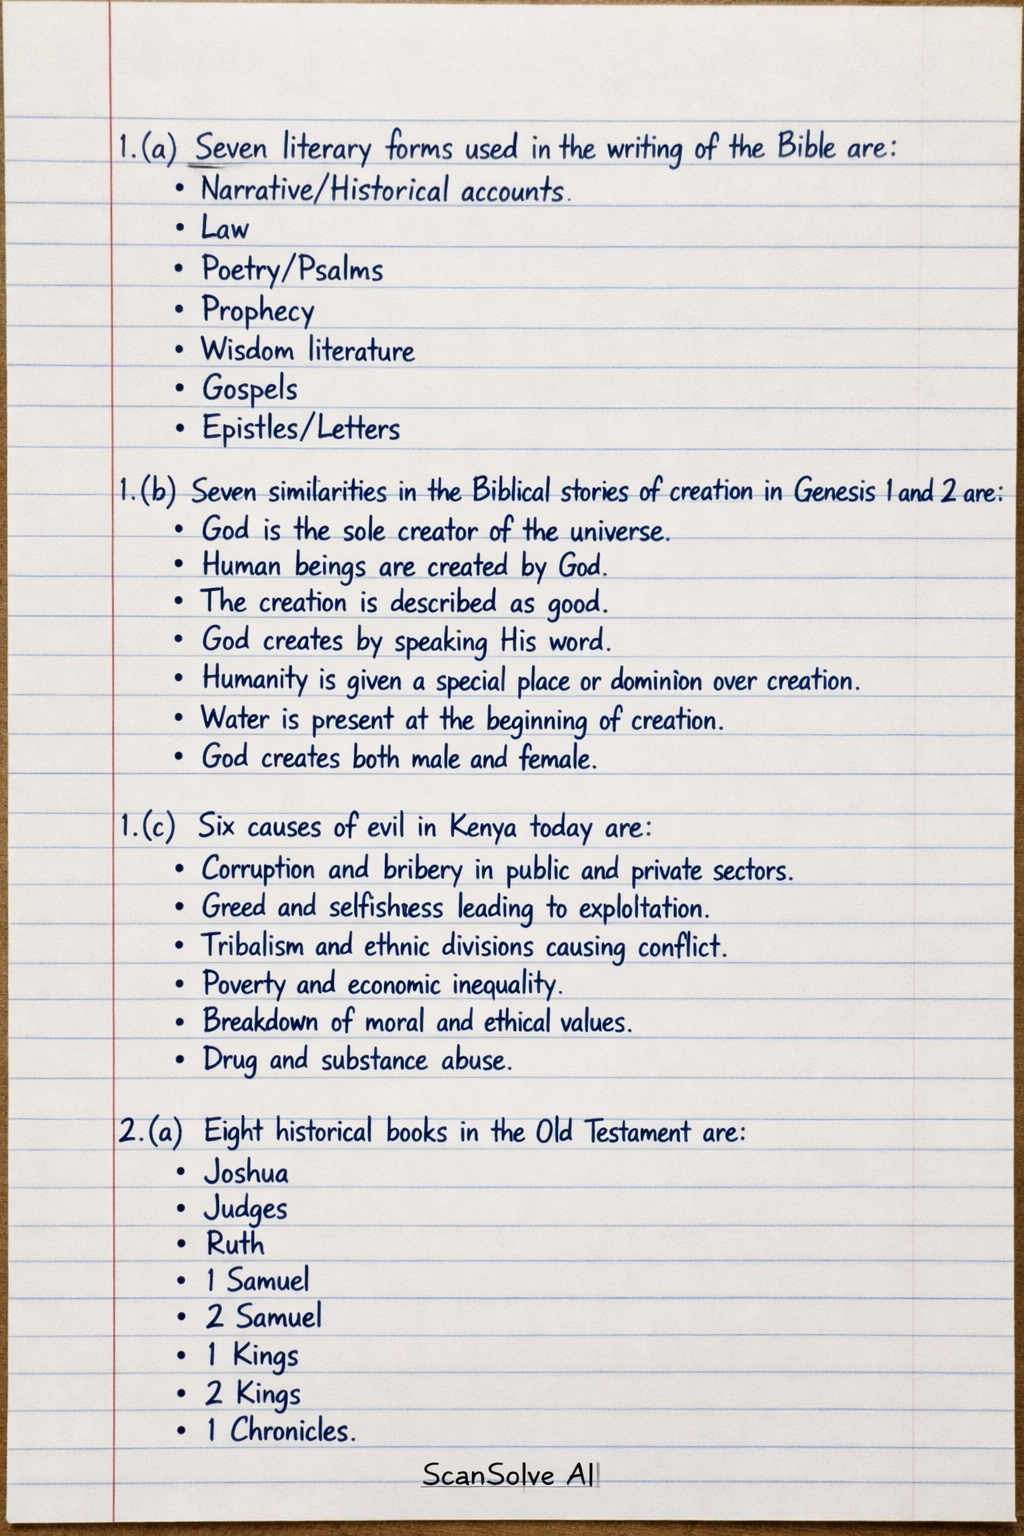 1.(a) Seven literary forms used in the writing of the Bible are:
• Narrative/Historical accounts.
• Law
• Poetry/Psalms
• Prophecy
• Wisdom literature
• Gospels
• Epistles/Letters
1.(b) Seven similarities in the Biblical stories of creation in Genesis 1 and 2 are:
• God is the sole creator of the universe.
• Human beings are created by God.
• The creation is described as good.
• God creates by speaking His word.
• Humanity is given a special place or dominion over creation.
• Water is present at the beginning of creation.
• God creates both male and female.
1.(c) Six causes of evil in Kenya today are:
• Corruption and bribery in public and private sectors.
• Greed and selfishness leading to exploltation.
• Tribalism and ethnic divisions causing conflict.
• Poverty and economic inequality.
• Breakdown of moral and ethical values.
• Drug and substance abuse.
2.(a) Eight historical books in the Old Testament are:
• Joshua
• Judges
• Ruth
• 1 Samuel
• 2 Samuel
• 1 Kings
• 2 Kings
• 1 Chronicles.
ScanSolve AI